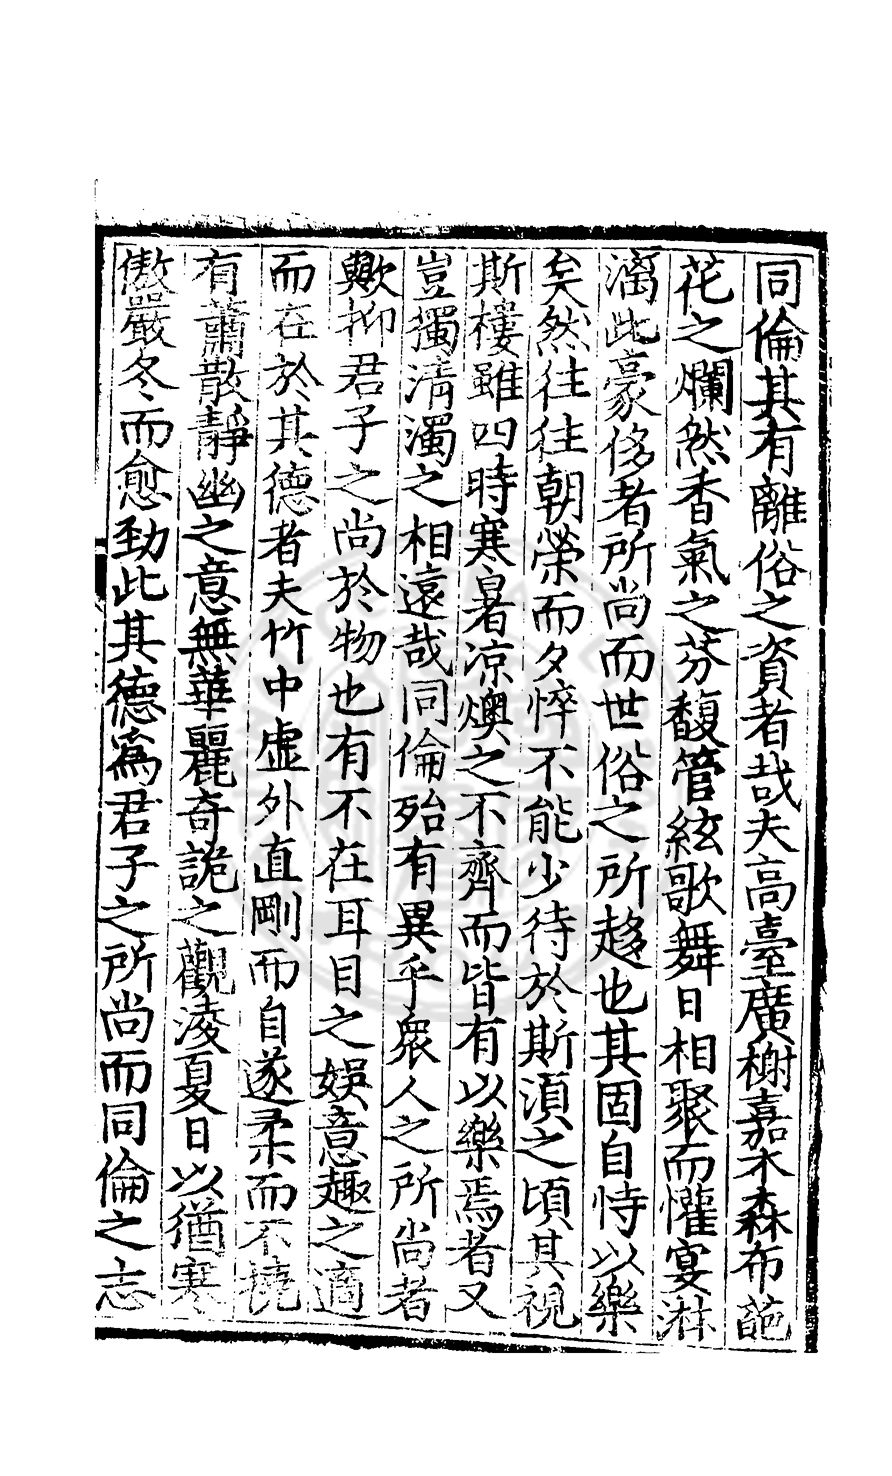 同倫其有離俗之資者哉夫高臺廣榭嘉木森布葩
花之爛然香氣之芬馥管絃歌舞日相聚而懽宴淋
漓此豪侈者所尚而世俗之所趍也其固自恃以樂
矣然往往朝榮而夕悴不能少待於斯湏之頃其視
斯樓雖四時寒暑涼燠之不齊而皆有以樂焉者又
豈獨淸濁之相遠哉同倫殆有異乎衆人之所尚者
歟抑君子之尚於物也有不在耳目之娛意趣之適
而在於其德者夫竹中虛外直剛而自遂柔而不撓
有蕭散靜幽之意無華麗奇詭之觀凌夏日以猶寒
傲嚴冬而愈勁此其德爲君子之所尚而同倫之志